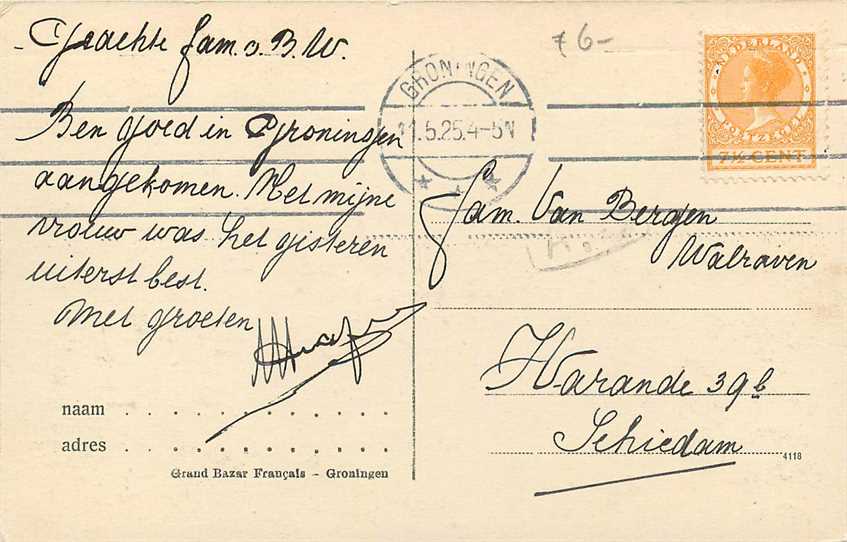 Geachte fam. v. B. W.
Ben goed in Groningen
aangekomen. Met mijne
vrouw was het gisteren
uiterst best.
Met groeten
naam
adres
Grand Bazar Français – Groningen
76-
GRONINGEN
11.5.25.4-5N
NEDERLAND
POSTZEGEL
7½ CENT
Fam. Van Bergen
Walraven
Warande 39b
Schiedam
4118